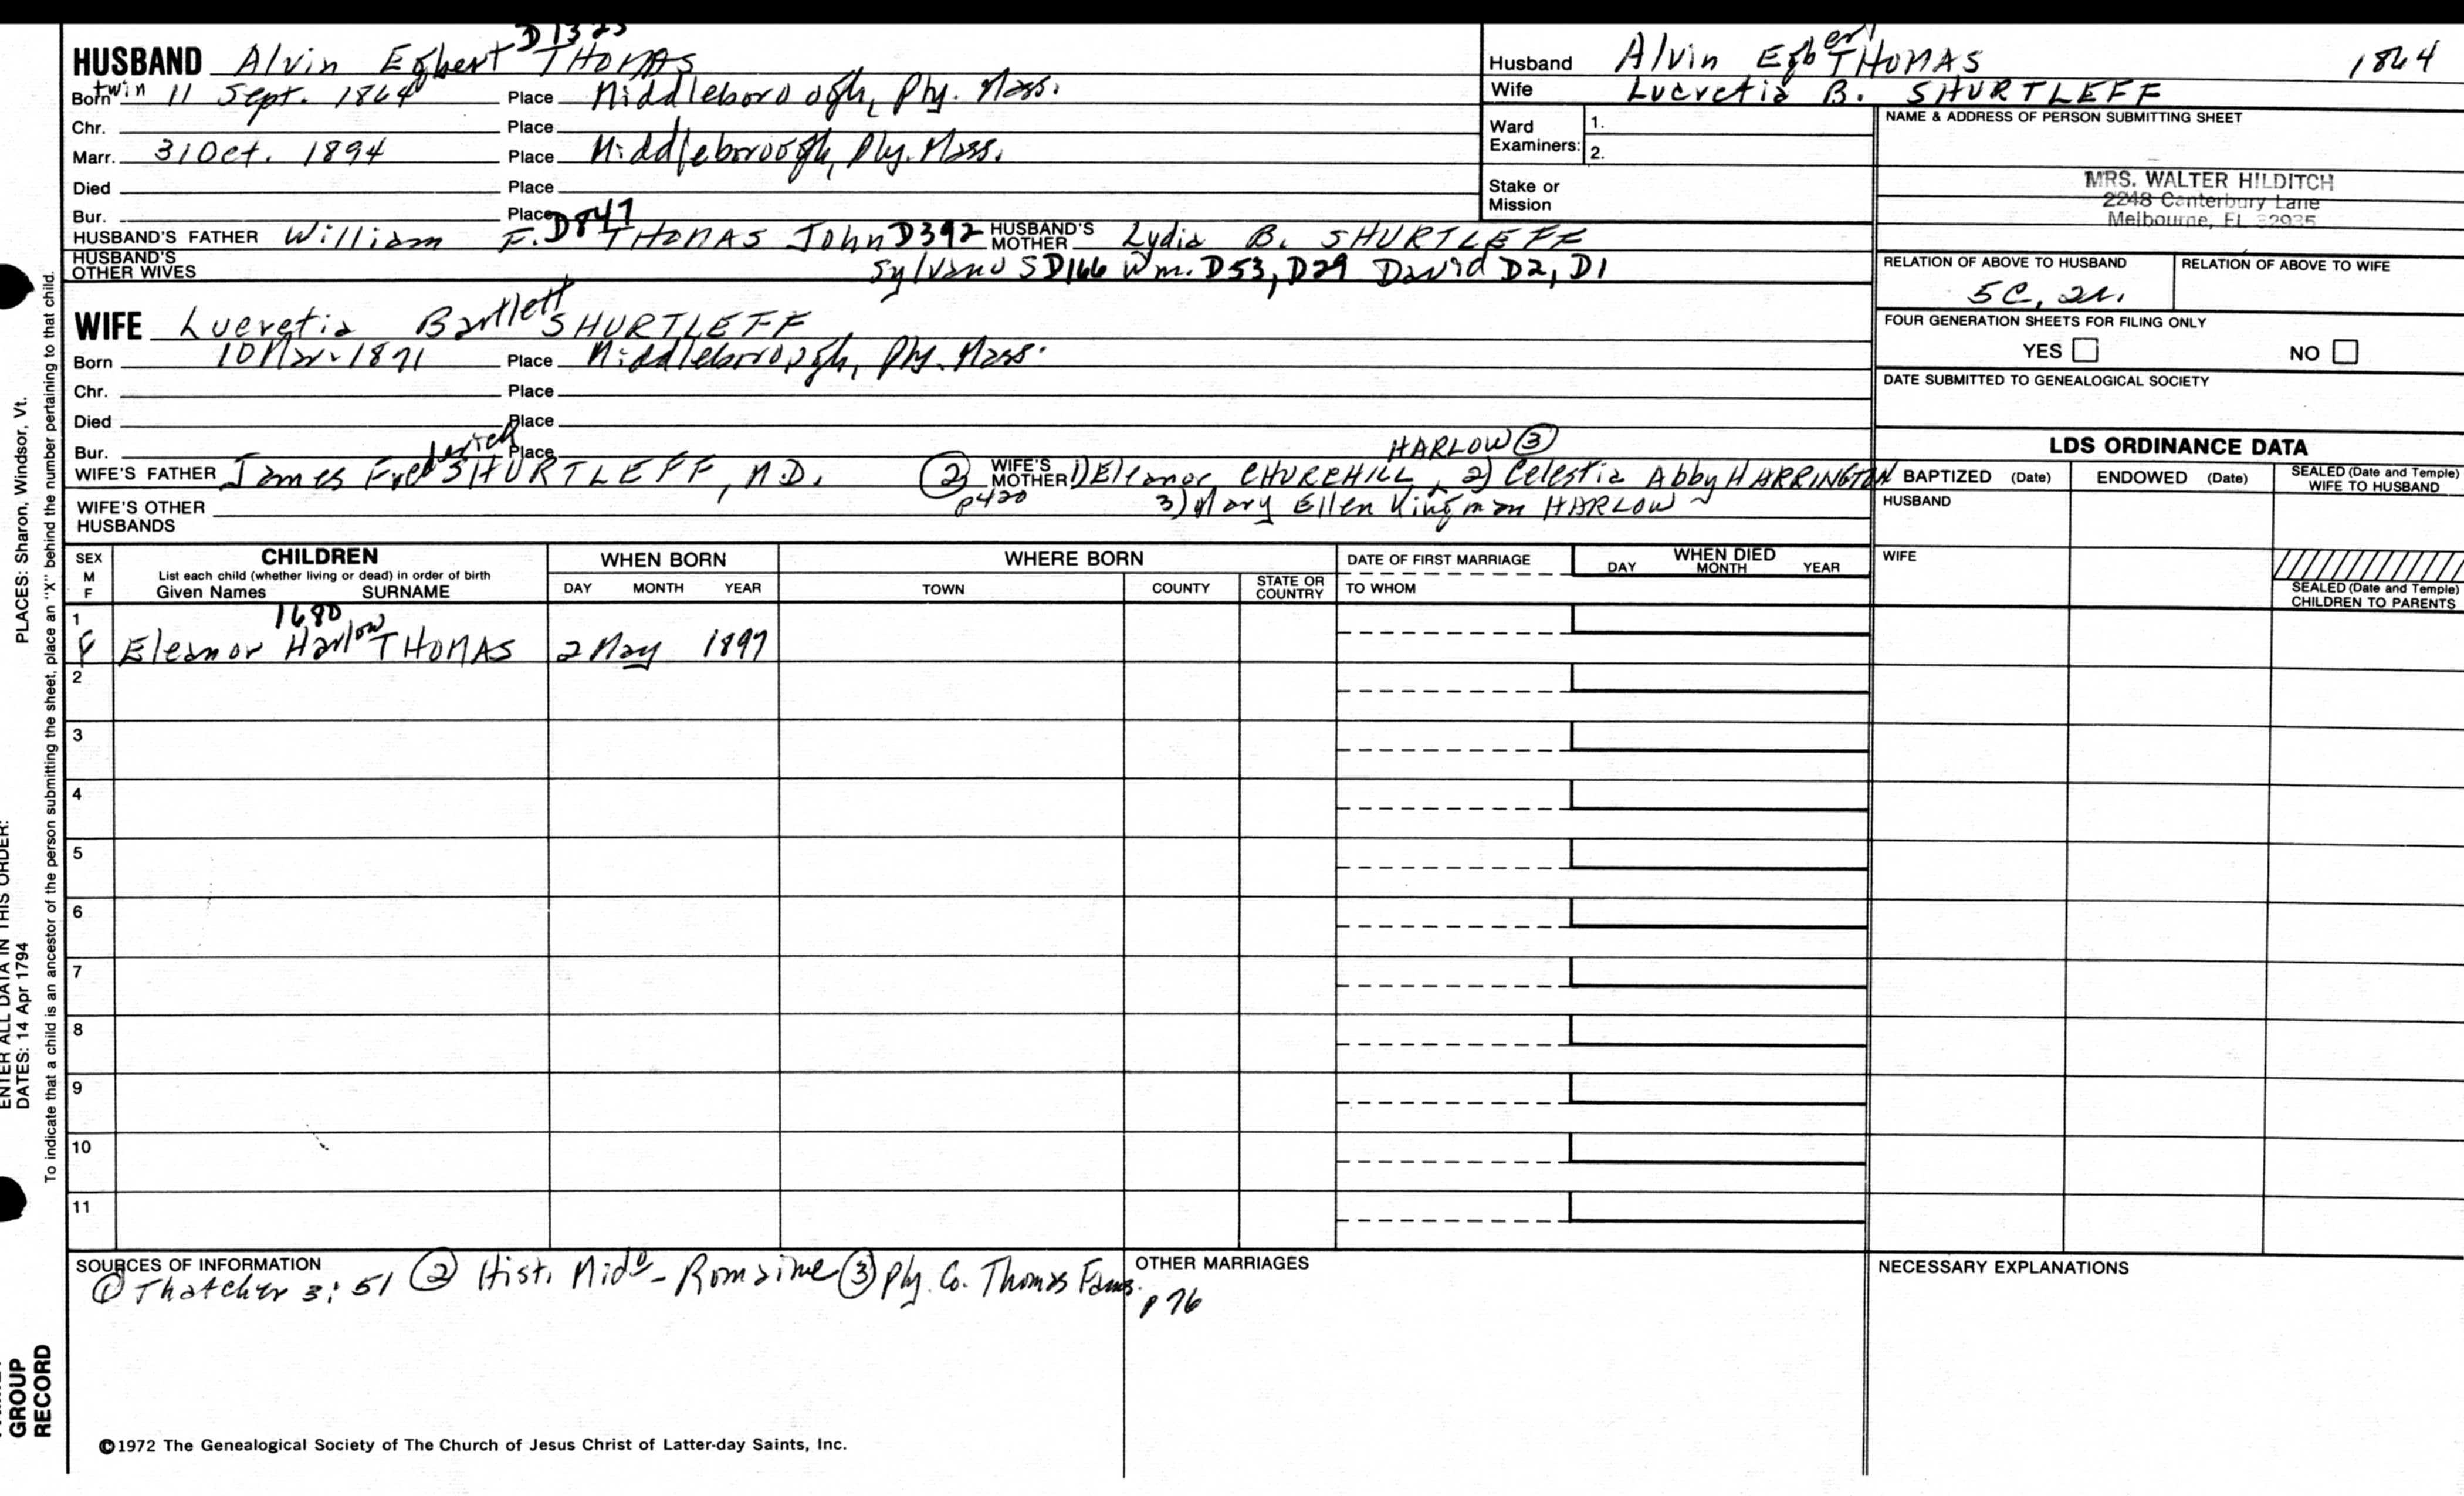 D1323
HUSBAND Alvin Egbert THOMAS
Born twin 11 Sept. 1864 Place Middleborough, Ply. Mass.
Chr. Place
Marr. 31 Oct. 1894 Place Middleborough, Ply. Mass.
Died Place
Bur. Place
HUSBAND'S FATHER William F. D847 THOMAS John D392 HUSBAND'S MOTHER Lydia B. SHURTLEFF
HUSBAND'S OTHER WIVES Sylvanus D166 Wm. D53, D29 David D2, D1
Husband Alvin Egbert THOMAS 1864
Wife Lucretia B. SHURTLEFF
Ward Examiners: 1.
2.
Stake or Mission
NAME & ADDRESS OF PERSON SUBMITTING SHEET
MRS. WALTER HILDITCH
2248 Canterbury Lane
Melbourne, FL 32935
RELATION OF ABOVE TO HUSBAND RELATION OF ABOVE TO WIFE
5C, 2r.
FOUR GENERATION SHEETS FOR FILING ONLY
YES NO
DATE SUBMITTED TO GENEALOGICAL SOCIETY
WIFE Lucretia Bartlett SHURTLEFF
Born 10 Mar. 1871 Place Middleborough, Ply. Mass.
Chr. Place
Died Place
Bur. Place
WIFE'S FATHER James Frederick SHURTLEFF, M.D. (2) p420 WIFE'S MOTHER 1) Eleanor CHURCHILL HARLOW (3), 2) Celestia Abby HARRINGTON
3) Mary Ellen Kingman HARLOW
WIFE'S OTHER HUSBANDS
LDS ORDINANCE DATA
BAPTIZED (Date) ENDOWED (Date) SEALED (Date and Temple) WIFE TO HUSBAND
HUSBAND
WIFE
SEALED (Date and Temple) CHILDREN TO PARENTS
SEX M F CHILDREN List each child (whether living or dead) in order of birth Given Names SURNAME
WHEN BORN DAY MONTH YEAR
WHERE BORN TOWN COUNTY STATE OR COUNTRY
DATE OF FIRST MARRIAGE TO WHOM
WHEN DIED DAY MONTH YEAR
1680
1 F Eleanor Harlow THOMAS 2 May 1897
2
3
4
5
6
7
8
9
10
11
SOURCES OF INFORMATION
① Thatcher 3:51 ② Hist. Mido - Romaine ③ Ply. Co. Thomas Fams. p 76
OTHER MARRIAGES
NECESSARY EXPLANATIONS
©1972 The Genealogical Society of The Church of Jesus Christ of Latter-day Saints, Inc.
ENTER ALL DATA IN THIS ORDER:
DATES: 14 Apr 1794 PLACES: Sharon, Windsor, Vt.
To indicate that a child is an ancestor of the person submitting the sheet, place an "X" behind the number pertaining to that child.
GROUP
RECORD